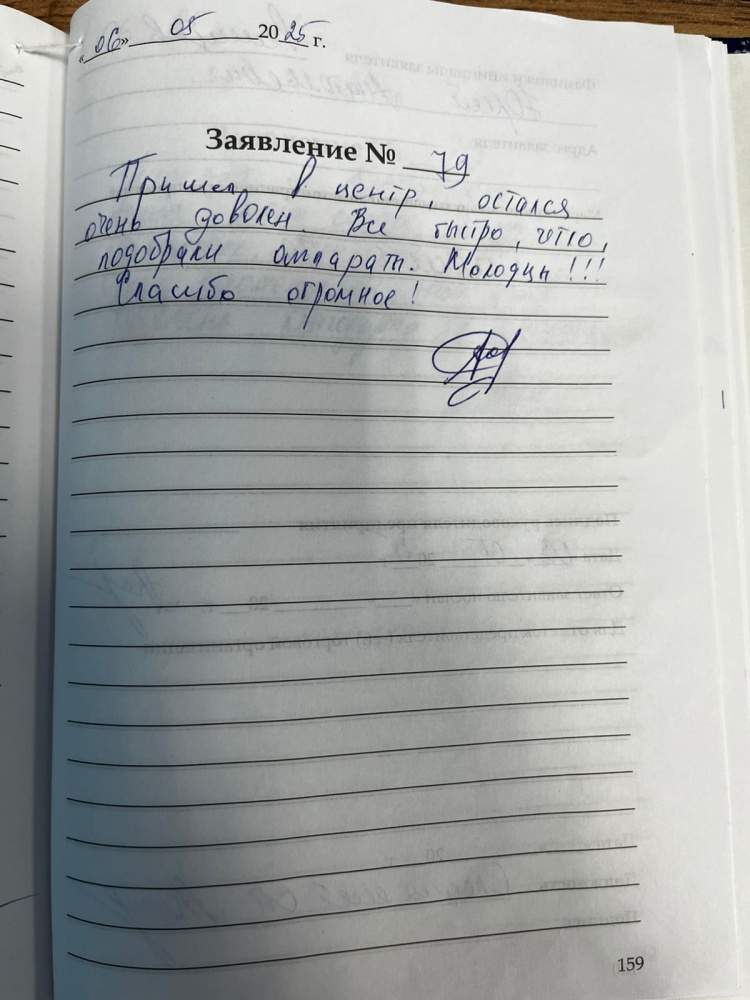 «06» 05 2025 г.
Заявление № 79
Пришел в центр, остался
очень доволен. Все быстро, что,
подобрали аппарат. Молодцы!!!
Спасибо огромное!
159